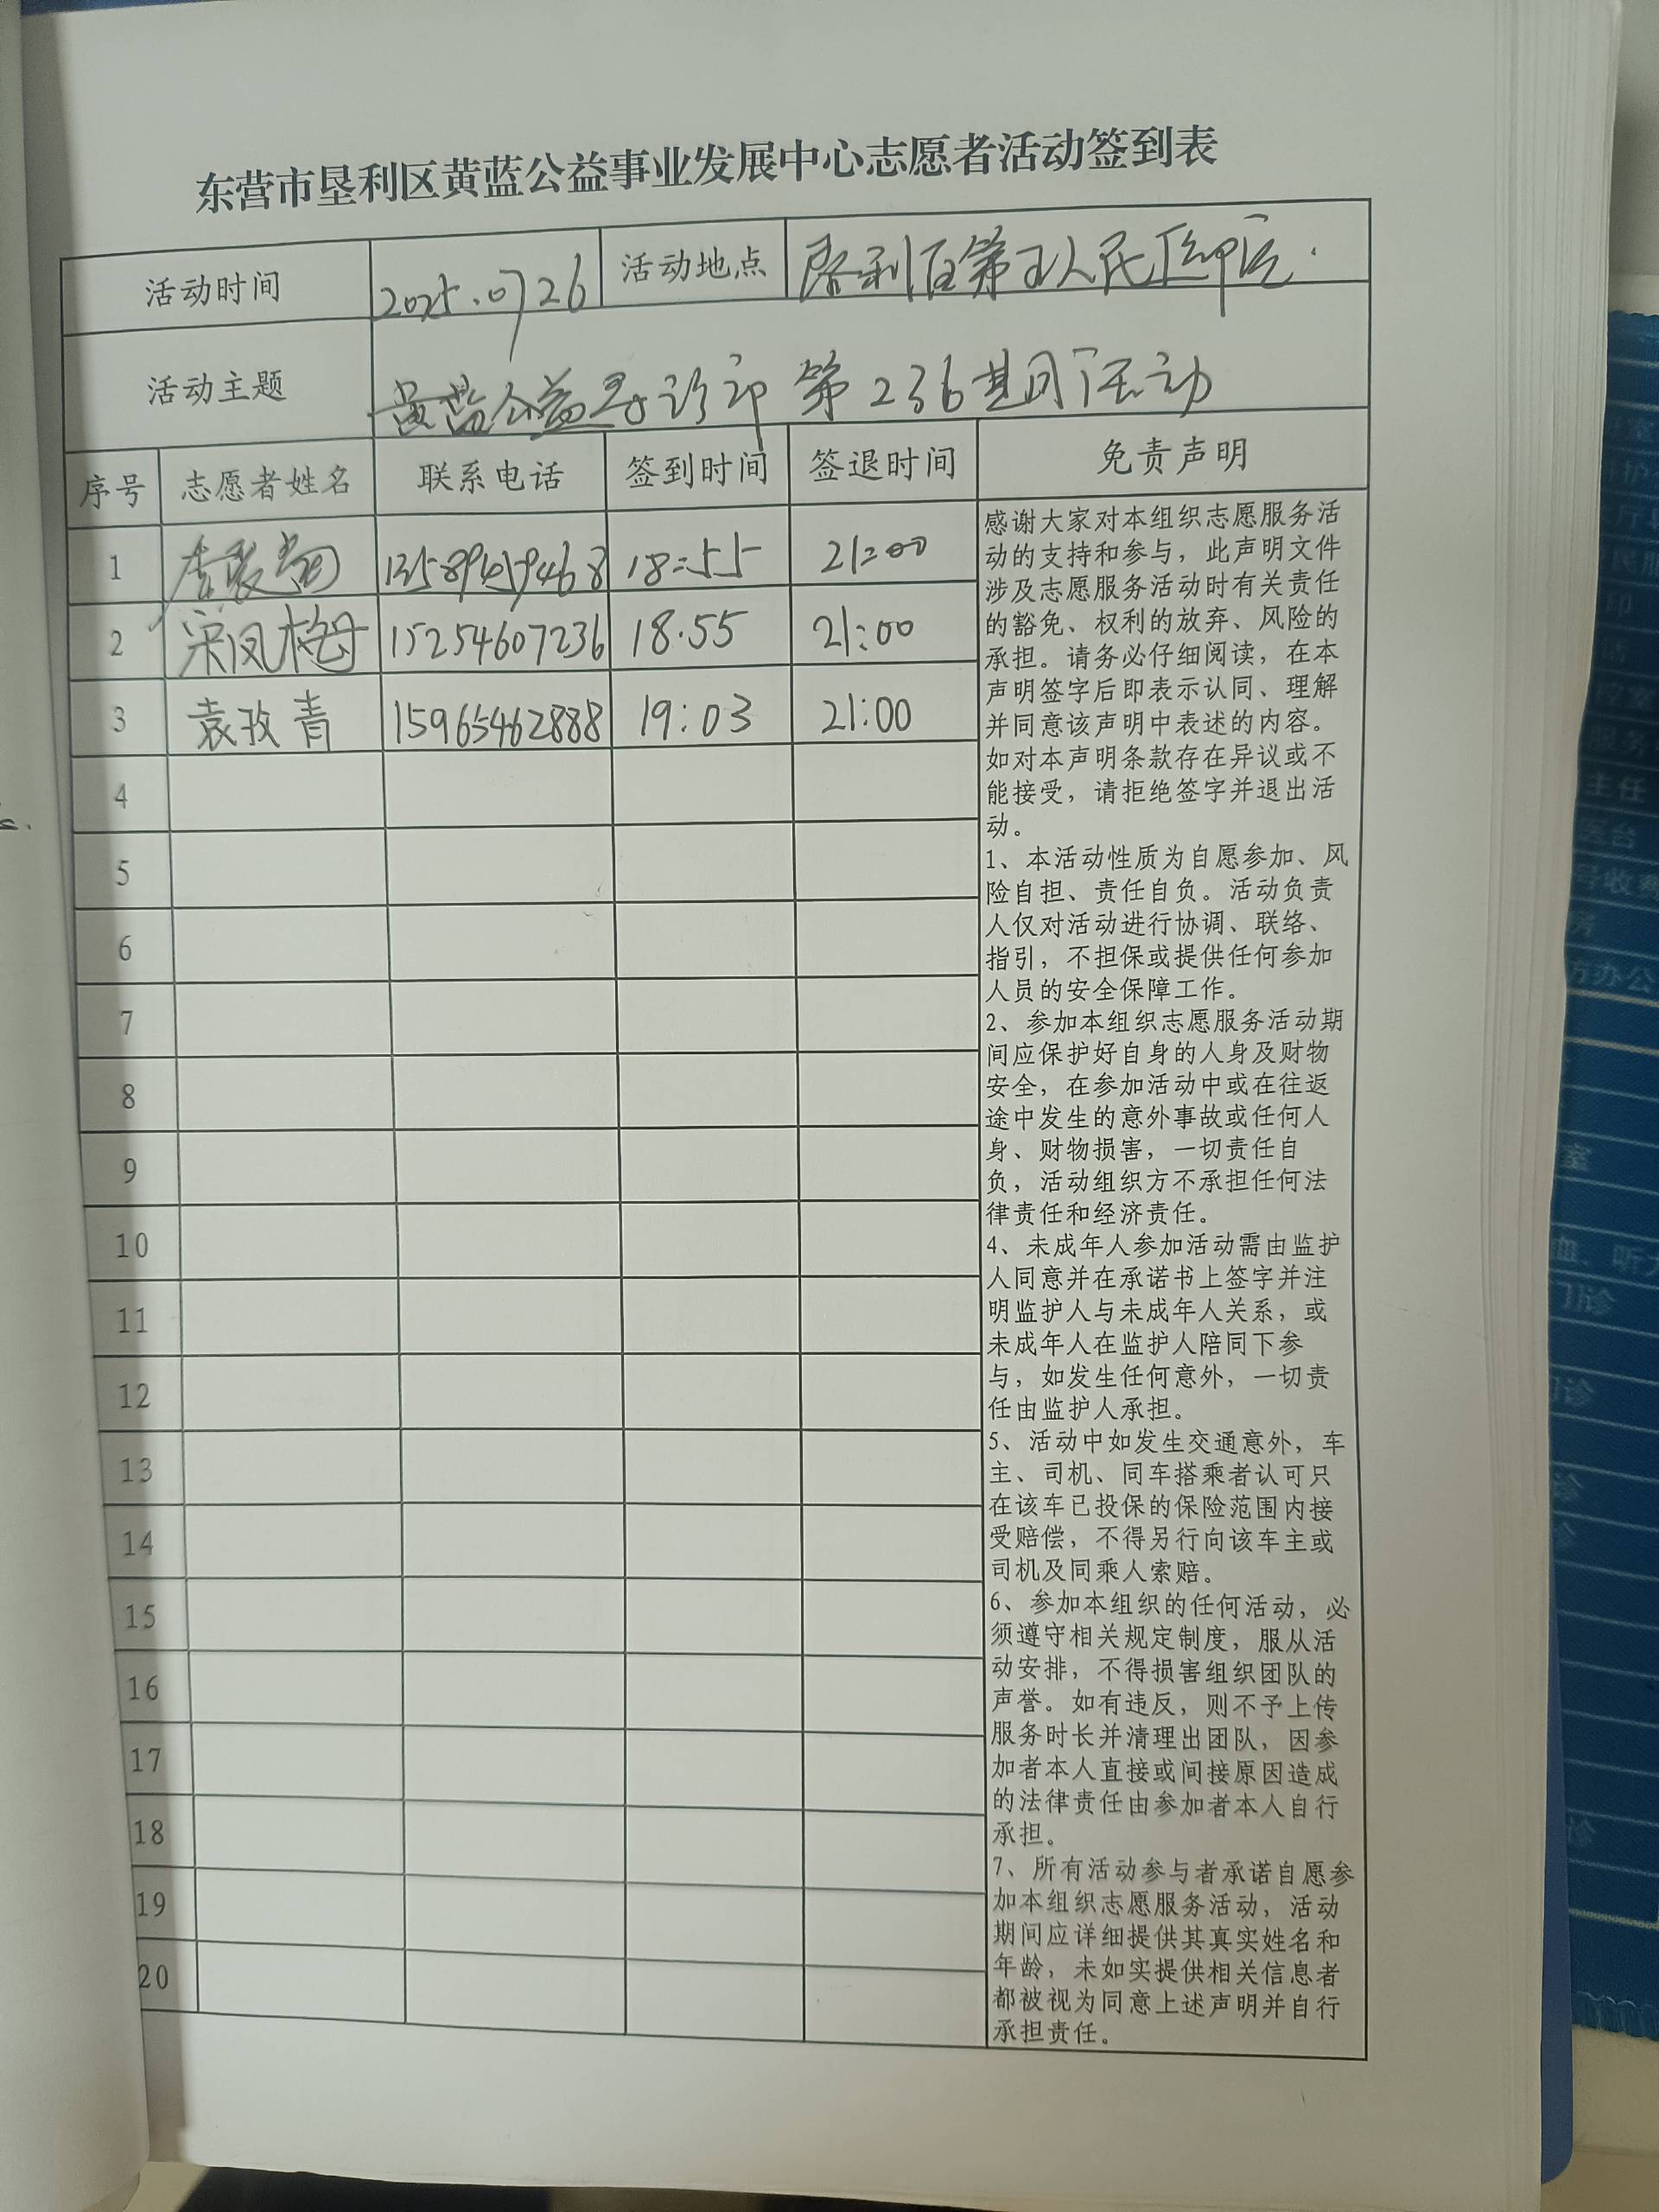 东营市垦利区黄蓝公益事业发展中心志愿者活动签到表
活动时间 2025.0726 活动地点 垦利区第 人民医院.
活动主题 黄蓝公益 诊 第236期 活动
序号 志愿者姓名 联系电话 签到时间 签退时间 免责声明
1 李 18:55 21:00
2 宋凤梅 15254607236 18.55 21:00
3 袁玫青 15965462888 19:03 21:00
4
5
6
7
8
9
10
11
12
13
14
15
16
17
18
19
20
感谢大家对本组织志愿服务活
动的支持和参与，此声明文件
涉及志愿服务活动时有关责任
的豁免、权利的放弃、风险的
承担。请务必仔细阅读，在本
声明签字后即表示认同、理解
并同意该声明中表述的内容。
如对本声明条款存在异议或不
能接受，请拒绝签字并退出活
动。
1、本活动性质为自愿参加、风
险自担、责任自负。活动负责
人仅对活动进行协调、联络、
指引，不担保或提供任何参加
人员的安全保障工作。
2、参加本组织志愿服务活动期
间应保护好自身的人身及财物
安全，在参加活动中或在往返
途中发生的意外事故或任何人
身、财物损害，一切责任自
负，活动组织方不承担任何法
律责任和经济责任。
4、未成年人参加活动需由监护
人同意并在承诺书上签字并注
明监护人与未成年人关系，或
未成年人在监护人陪同下参
与，如发生任何意外，一切责
任由监护人承担。
5、活动中如发生交通意外，车
主、司机、同车搭乘者认可只
在该车已投保的保险范围内接
受赔偿，不得另行向该车主或
司机及同乘人索赔。
6、参加本组织的任何活动，必
须遵守相关规定制度，服从活
动安排，不得损害组织团队的
声誉。如有违反，则不予上传
服务时长并清理出团队，因参
加者本人直接或间接原因造成
的法律责任由参加者本人自行
承担。
7、所有活动参与者承诺自愿参
加本组织志愿服务活动，活动
期间应详细提供其真实姓名和
年龄，未如实提供相关信息者
都被视为同意上述声明并自行
承担责任。